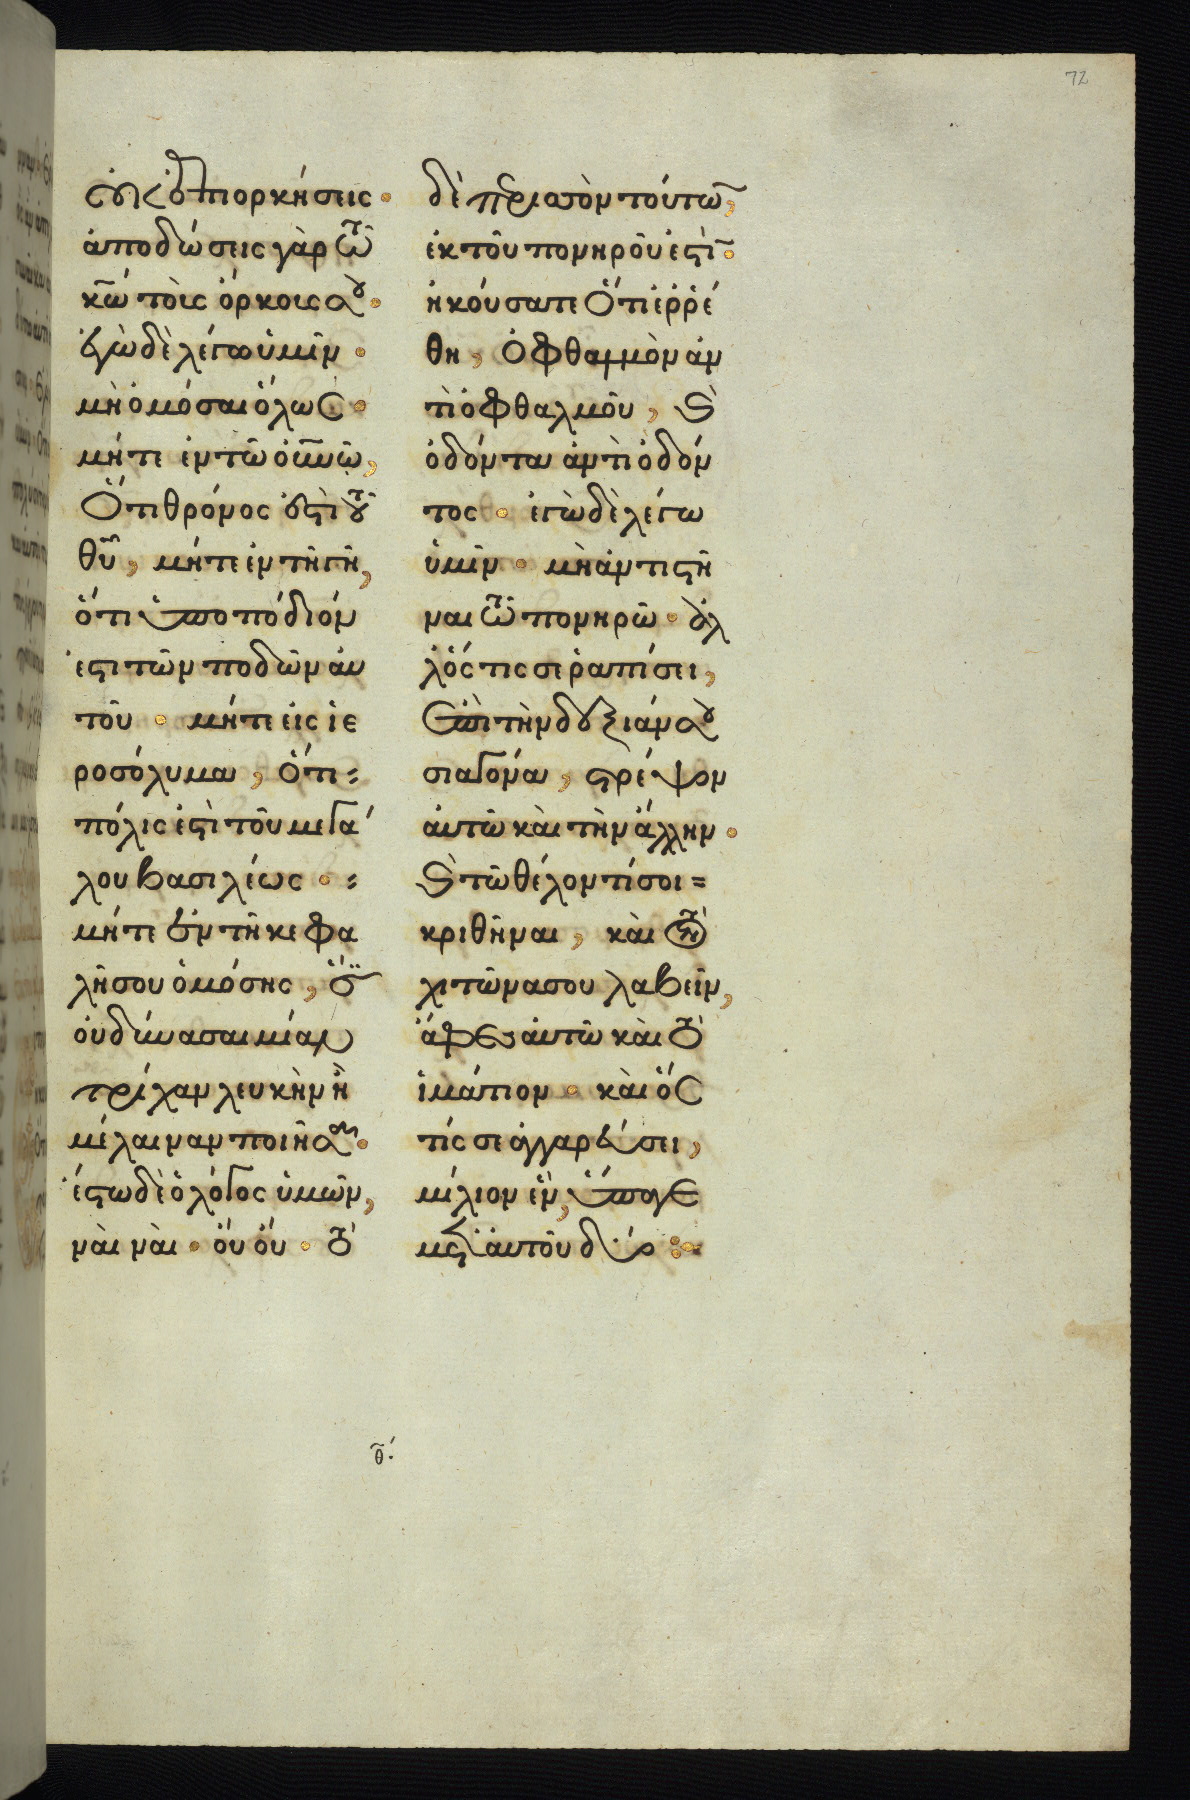 72
οὐκ ἐπιορκήσεις·
ἀποδώσεις γὰρ τῶ
κῶ τοὺς ὅρκους σου·
ἐγὼ δὲ λέγω ὑμῖν·
μὴ ὀμόσαι ὅλως·
μήτε ἐν τῶ οὐνῶ,
ὅτι θρόνος ἐστὶ τοῦ
θῦ, μήτε ἐν τῆ γῆ,
ὅτι ὑποπόδιόν
ἐστι τῶν ποδῶν αὐ
τοῦ· μήτε εἰς ἱε
ροσόλυμα, ὅτι
πόλις ἐστὶ τοῦ μεγά
λου βασιλέως·
μήτε ἐν τῆ κεφα
λῆ σου ὀμόσης, ὅτι
οὐ δύνασαι μίαν
τρίχαν λευκὴν ἢ
μέλαιναν ποιῆσαι·
ἔστω δὲ ὁ λόγος ὑμῶν,
ναὶ ναὶ· οὒ οὔ· τὸ
δὲ περισσὸν τούτων,
ἐκ τοῦ πονηροῦ ἐστίν·
ἠκούσατε ὅτι ἐρρέ
θη, ὀφθαλμὸν ἀν
τὶ ὀφθαλμοῦ, καὶ
ὀδόντα ἀντὶ ὀδόν
τος· ἐγὼ δὲ λέγω
ὑμῖν· μὴ ἀντιστῆ
ναι τῶ πονηρῶ· ἀλ
λ' ὅς τις σε ῥαπίσει,
ἐπὶ τὴν δεξιάν σου
σιαγόνα, στρέψον
αὐτῶ καὶ τὴν ἄλλην·
καὶ τῶ θέλοντί σοι
κριθῆναι, καὶ τὸν
χιτῶνα σου λαβεῖν,
ἄφες αὐτῶ καὶ τὸ
ἱμάτιον· καὶ ὅς
τίς σε ἀγγαρεύσει,
μίλιον ἕν, ὕπαγε
μετ' αὐτοῦ δύο
θ